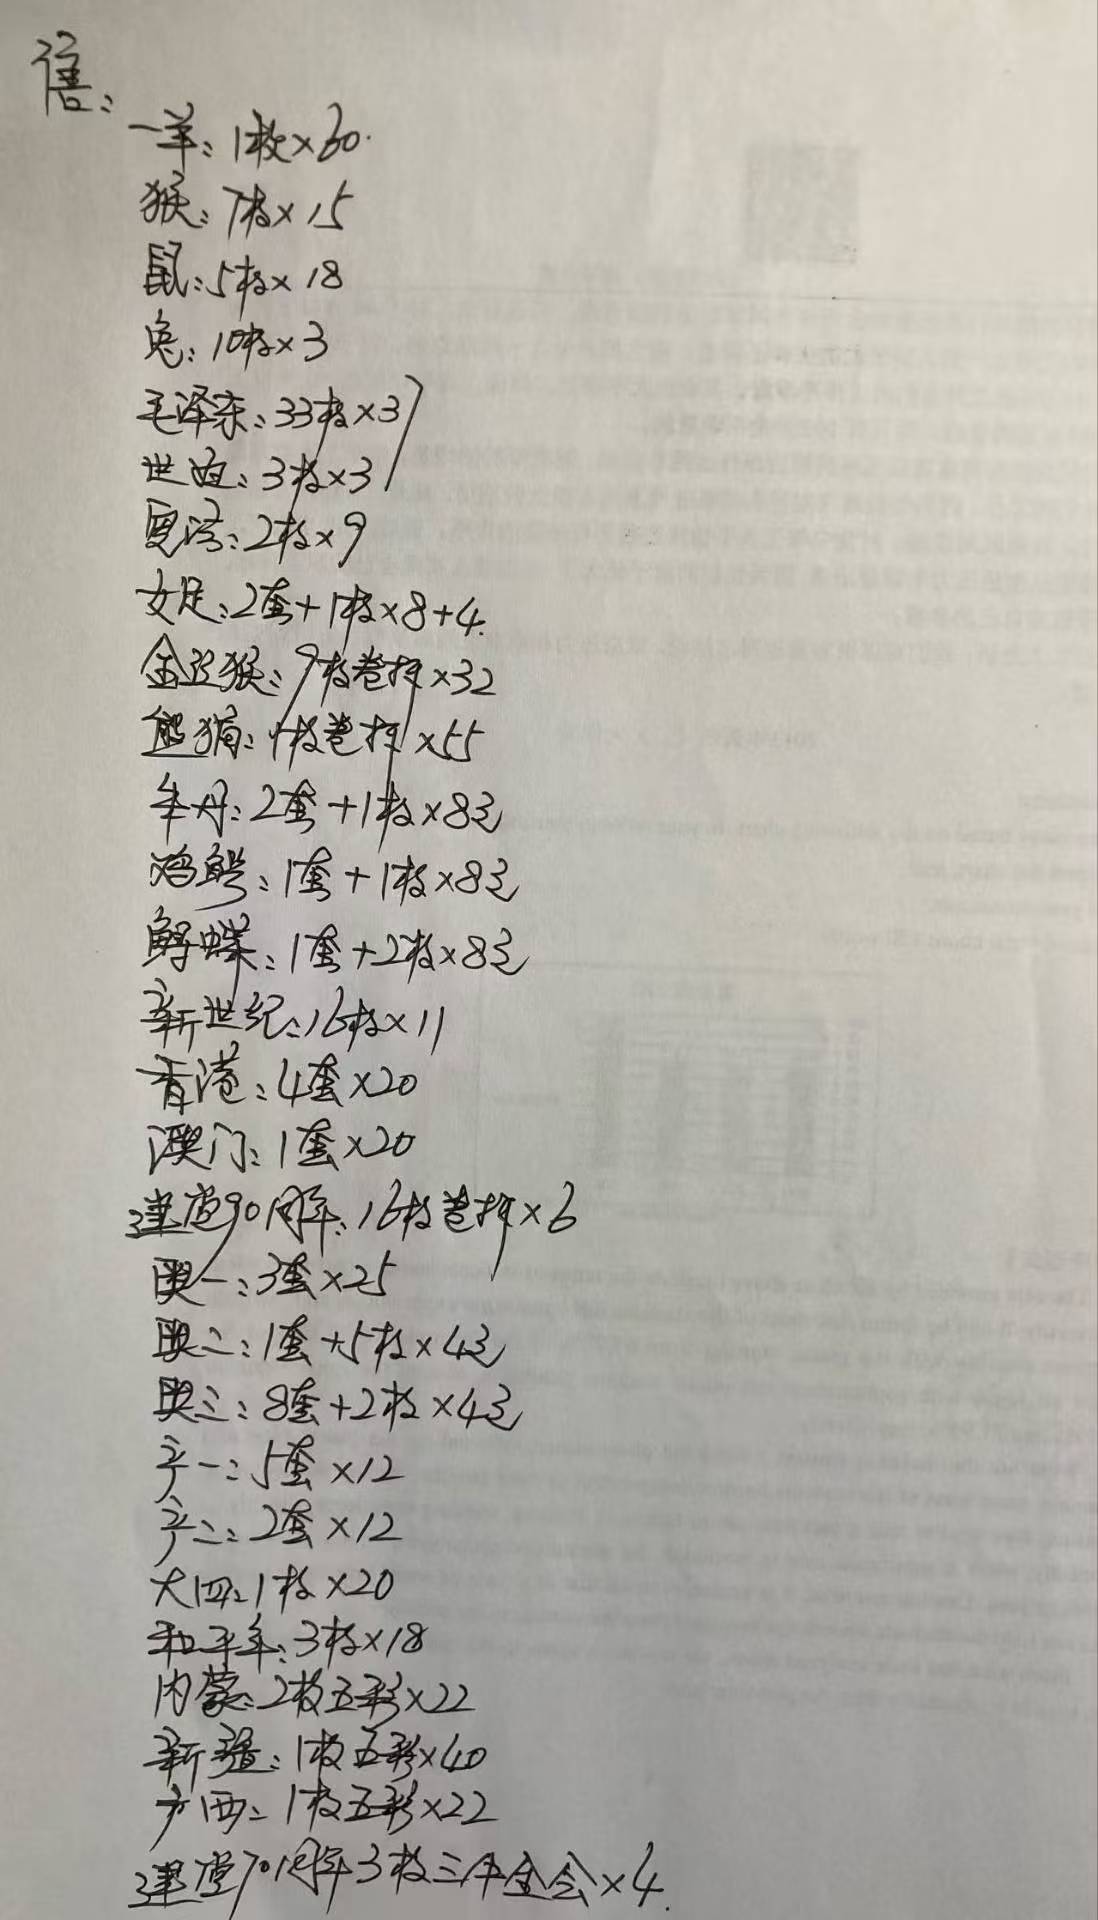 售:
一羊:1枚×60.
猴:7枚×15
鼠:5枚×18
兔:10枚×3
毛泽东:33枚×3
世妇:3枚×3
宪法:2枚×9
女足:2套+1枚×8+4.
金丝猴:9枚卷拆×32
熊猫:1枚卷拆×55
牡丹:2套+1枚×8元
鸡鳄:1套+1枚×8元
鲟蝶:1套+2枚×8元
新世纪:16枚×11
香港:4套×20
澳门:1套×20
建党90周年:16枚卷拆×6
奥一:3套×25
奥二:1套+5枚×4元
奥三:8套+2枚×4元
字一:5套×12
字二:2套×12
大四:1枚×20
和平年:3枚×18
内蒙:2枚五彩×22
新疆:1枚五彩×40
广西:1枚五彩×22
建党70周年3枚三件全会×4.